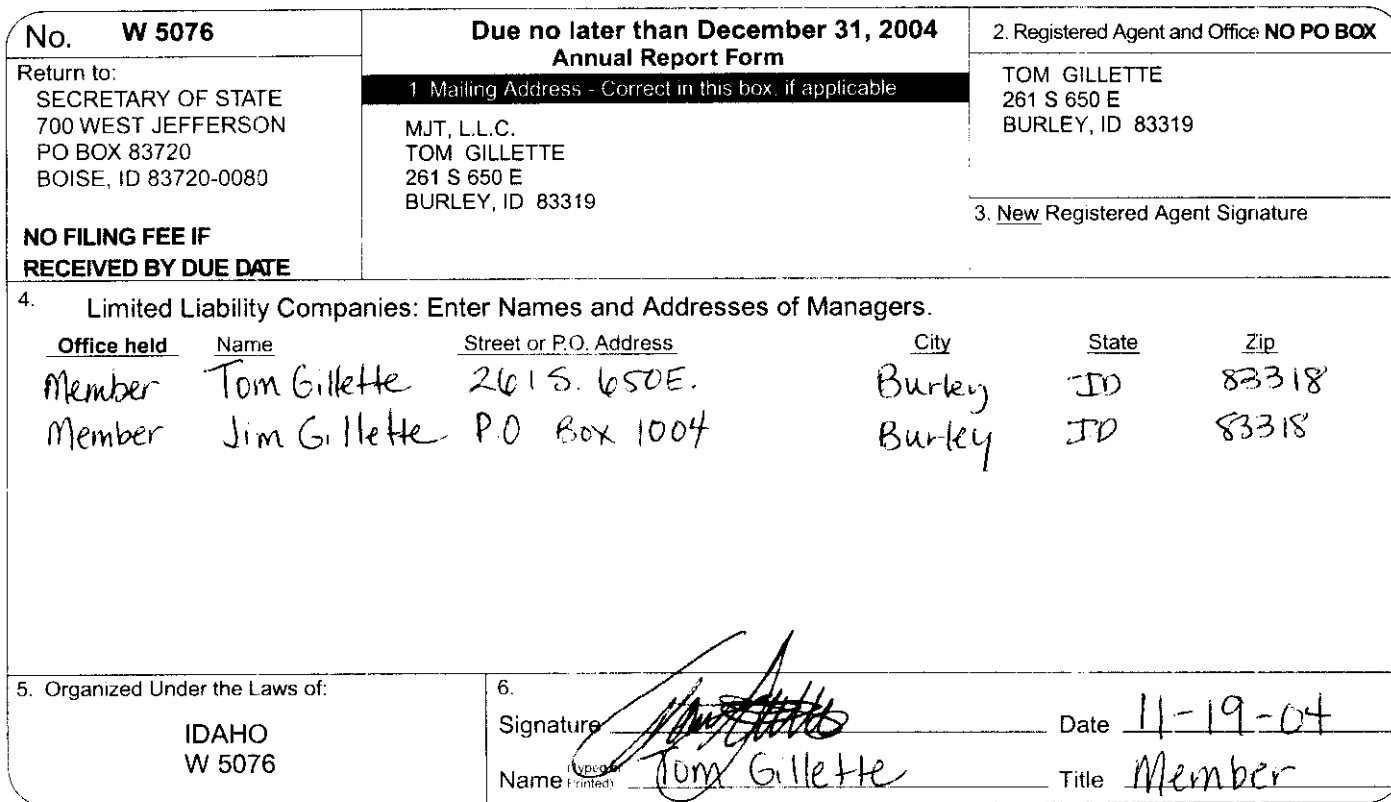 No. W 5076
Return to:
SECRETARY OF STATE
700 WEST JEFFERSON
PO BOX 83720
BOISE, ID 83720-0080
NO FILING FEE IF
RECEIVED BY DUE DATE
Due no later than December 31, 2004
Annual Report Form
1 Mailing Address - Correct in this box, if applicable
MJT, L.L.C.
TOM GILLETTE
261 S 650 E
BURLEY, ID 83319
2. Registered Agent and Office NO PO BOX
TOM GILLETTE
261 S 650 E
BURLEY, ID 83319
3. New Registered Agent Signature
4. Limited Liability Companies: Enter Names and Addresses of Managers.
Office held Name Street or P.O. Address City State Zip
Member Tom Gillette 261 S. 650E. Burley ID 83318
Member Jim Gillette P.O Box 1004 Burley ID 83318
5. Organized Under the Laws of:
IDAHO
W 5076
6.
Signature Date 11-19-04
Name (Typed or Printed) Tom Gillette Title Member